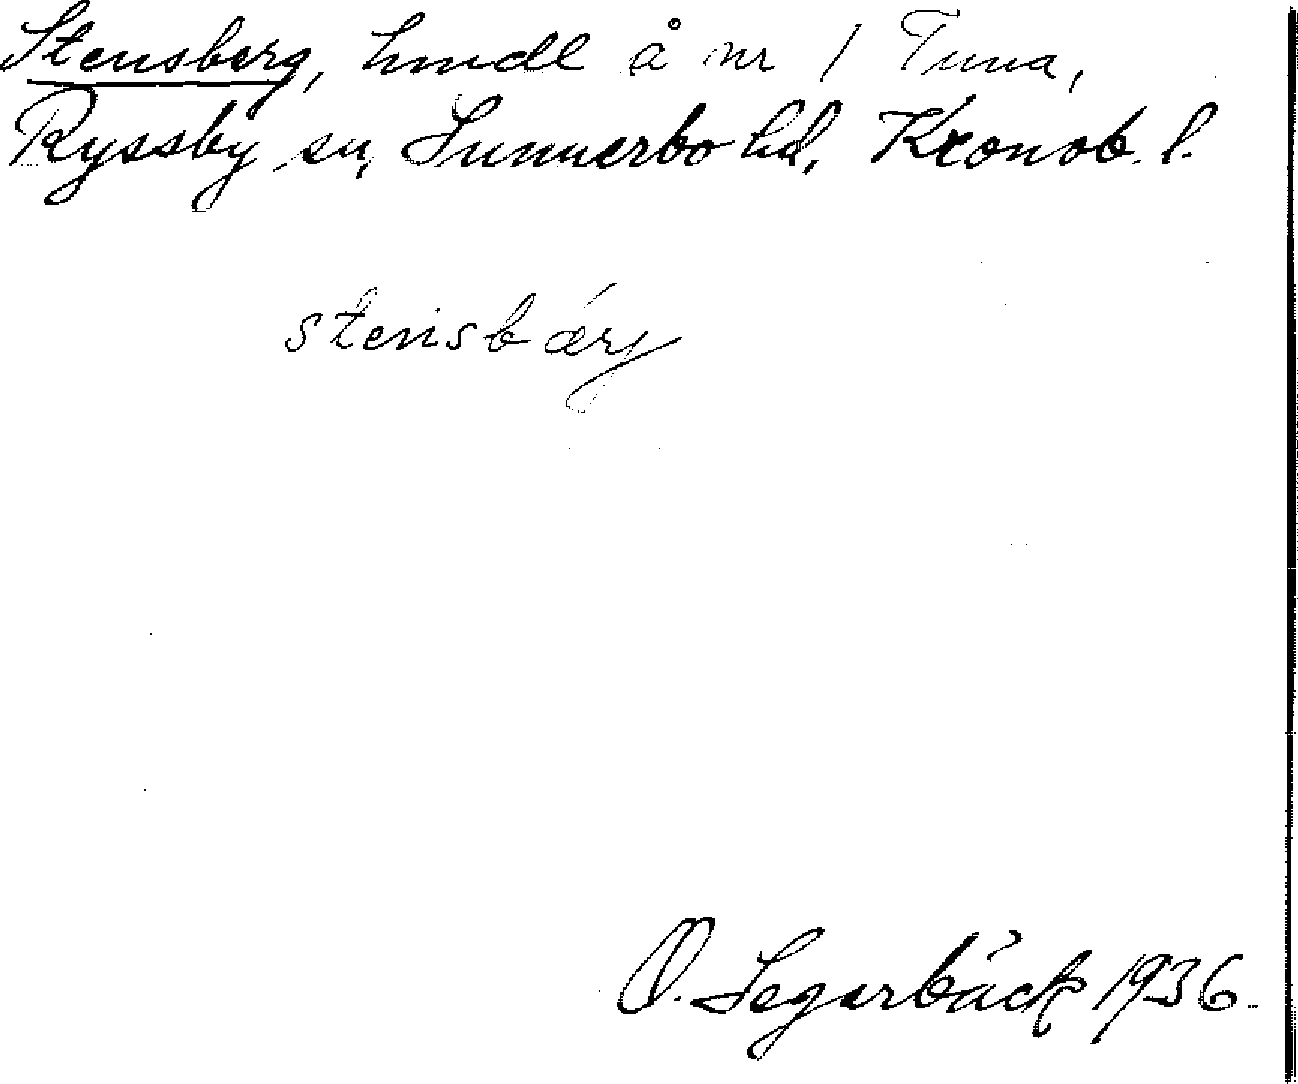 Stensberg, hmdl å nr 1 Tuna,
Ryssby sn, Sunnerbo hd, Kronob. l.
stensbærj
O. Segerbäck 1936.